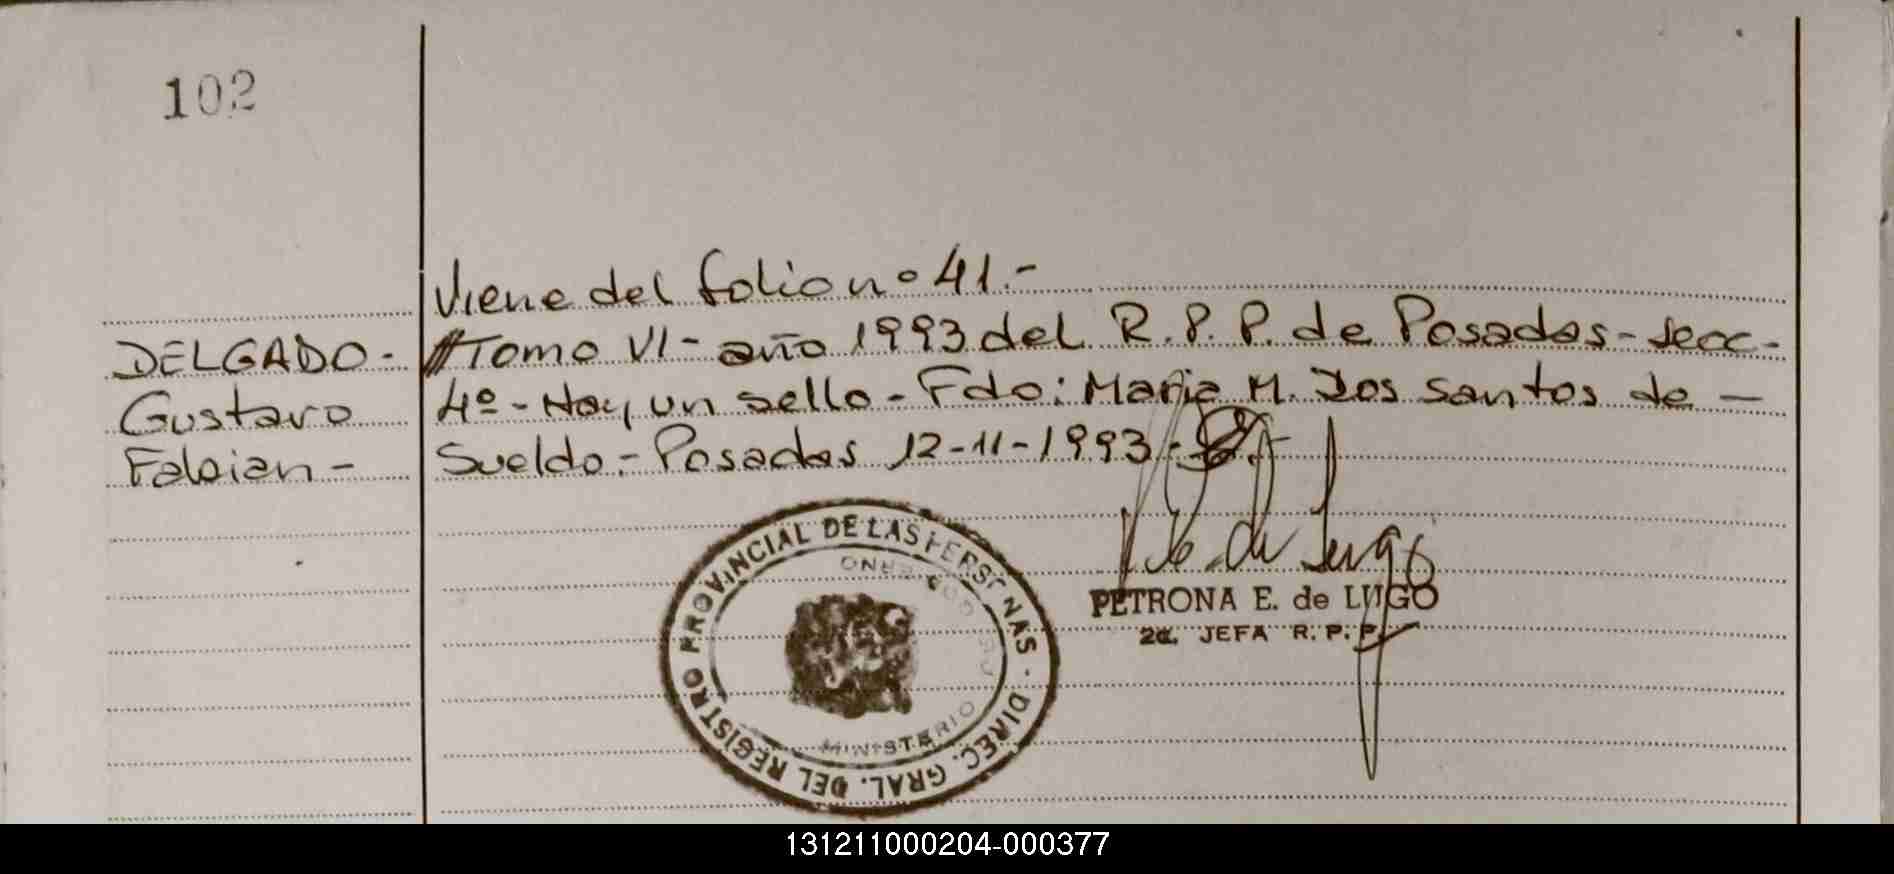 102
Viene del folio nº 41.-
DELGADO- Tomo VI- año 1993 del R.P.P. de Posadas- secc-
Gustavo 4º- Hay un sello- Fdo: Maria M. Dos Santos de -
Fabian- Sueldo.- Posadas 12-11-1993.-
DIREC. GRAL. DEL REGISTRO PROVINCIAL DE LAS PERSONAS
MINISTERIO
PETRONA E. de LUGO
2a. JEFA R.P.P.
131211000204-000377